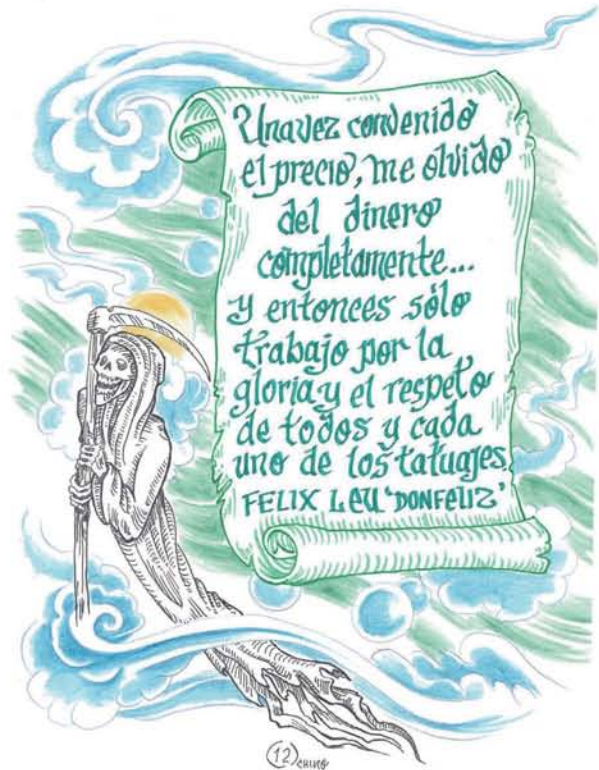 Una vez convenido
el precio, me olvido
del dinero
completamente...
y entonces sólo
trabajo por la
gloria y el respeto
de todos y cada
uno de los tatuajes.
FELIX LEU 'DONFELIZ'
12 CHINO